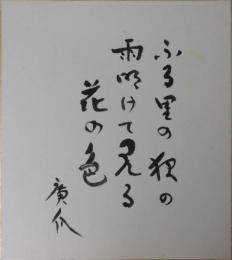 ふる里の秋の
雨明けて見る
花の色
廣爪